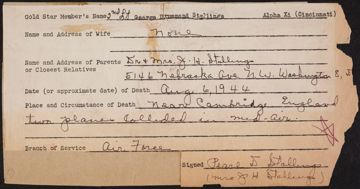 Gold Star Member's Name 2nd Lt George Hammond Stallings Alpha Xi (Cincinnati)
Name and Address of Wife None
Name and Address of Parents Dr & Mrs J. H. Stallings
or Closest Relatives 5146 Nebraska Ave N.W. Washington
Date (or approximate date) of Death Aug 6, 1944
Place and Circumstance of Death Near Cambridge England
two planes collided in mid-air.
Branch of Service Air Force
Signed Pearl D Stallings
(Mrs J H Stallings)